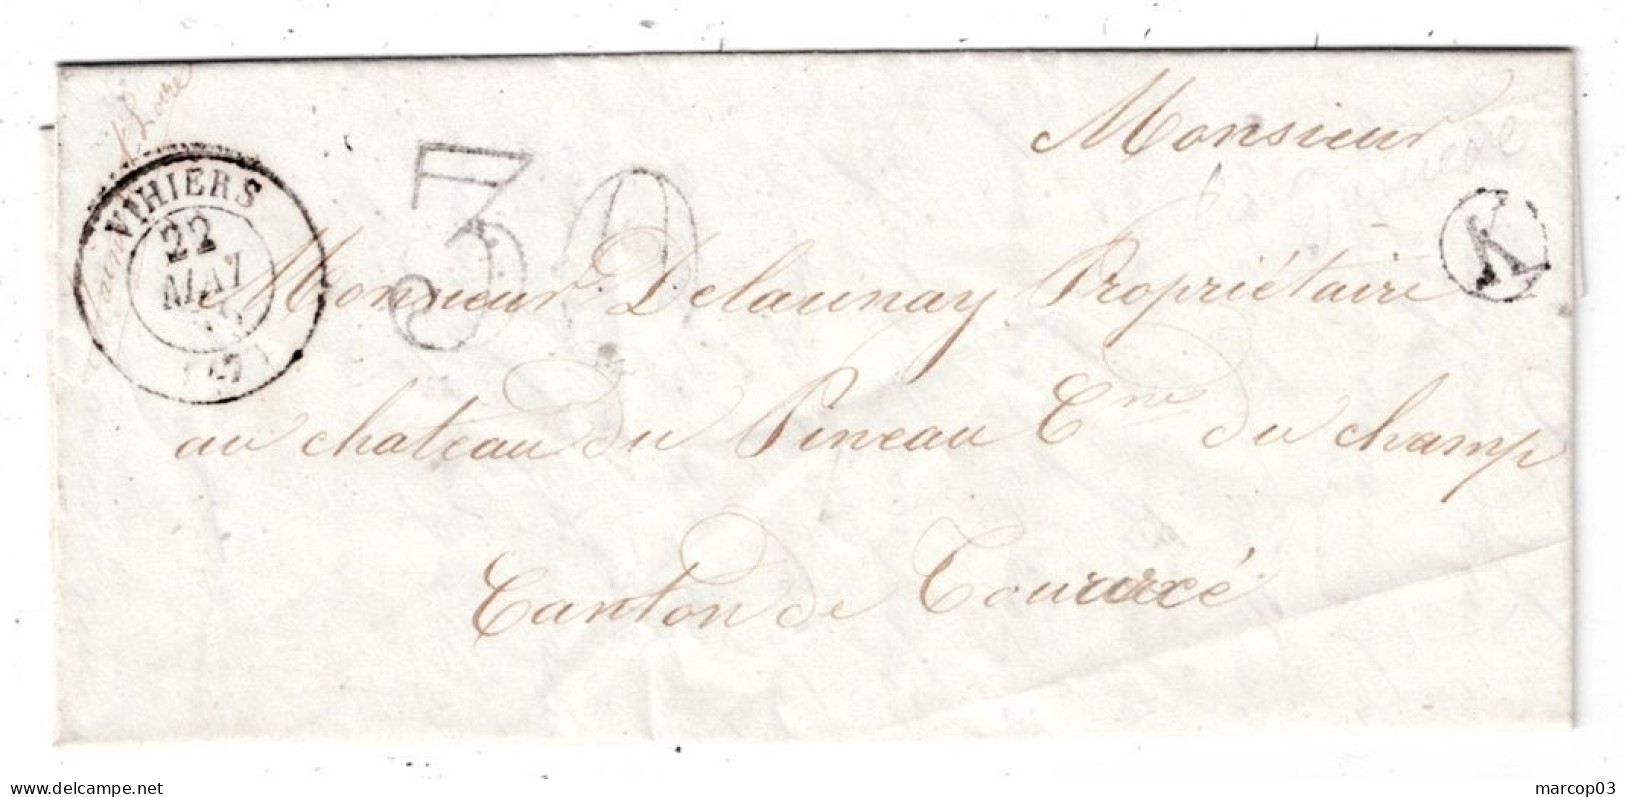 Loire
VIHIERS
22
MAI
30
Monsieur
K
Monsieur Delaunay Propriétaire
au chateau du Pineau Cne du champ
Canton de Touarcé
marcop03